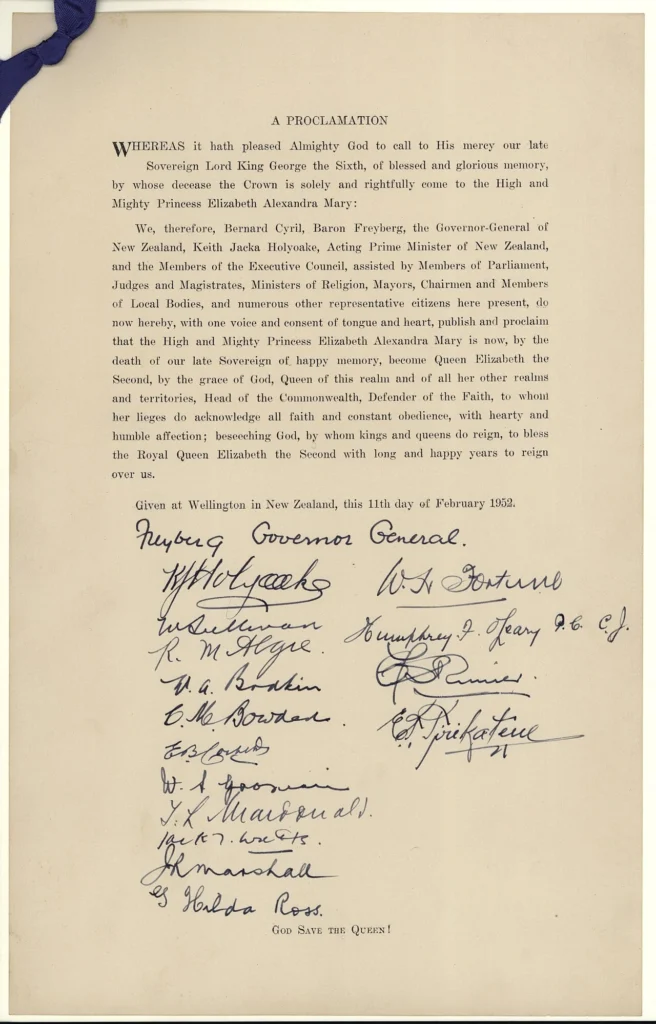 A PROCLAMATION
WHEREAS it hath pleased Almighty God to call to His mercy our late
Sovereign Lord King George the Sixth, of blessed and glorious memory,
by whose decease the Crown is solely and rightfully come to the High and
Mighty Princess Elizabeth Alexandra Mary:
We, therefore, Bernard Cyril, Baron Freyberg, the Governor-General of
New Zealand, Keith Jacka Holyoake, Acting Prime Minister of New Zealand,
and the Members of the Executive Council, assisted by Members of Parliament,
Judges and Magistrates, Ministers of Religion, Mayors, Chairmen and Members
of Local Bodies, and numerous other representative citizens here present, do
now hereby, with one voice and consent of tongue and heart, publish and proclaim
that the High and Mighty Princess Elizabeth Alexandra Mary is now, by the
death of our late Sovereign of happy memory, become Queen Elizabeth the
Second, by the grace of God, Queen of this realm and of all her other realms
and territories, Head of the Commonwealth, Defender of the Faith, to whom
her lieges do acknowledge all faith and constant obedience, with hearty and
humble affection; beseeching God, by whom kings and queens do reign, to bless
the Royal Queen Elizabeth the Second with long and happy years to reign
over us.
Given at Wellington in New Zealand, this 11th day of February 1952.
Freyberg Governor General.
KJ Holyoake
W. H. Fortune
W Sullivan
Humphrey F. O'Leary P.C. C.J.
R. M. Algie.
W. A. Bodkin
C. M. Bowden.
E. T. Tirikatene
T. L. Macdonald.
Jack T. Watts.
JR Marshall
Hilda Ross.
GOD SAVE THE QUEEN!